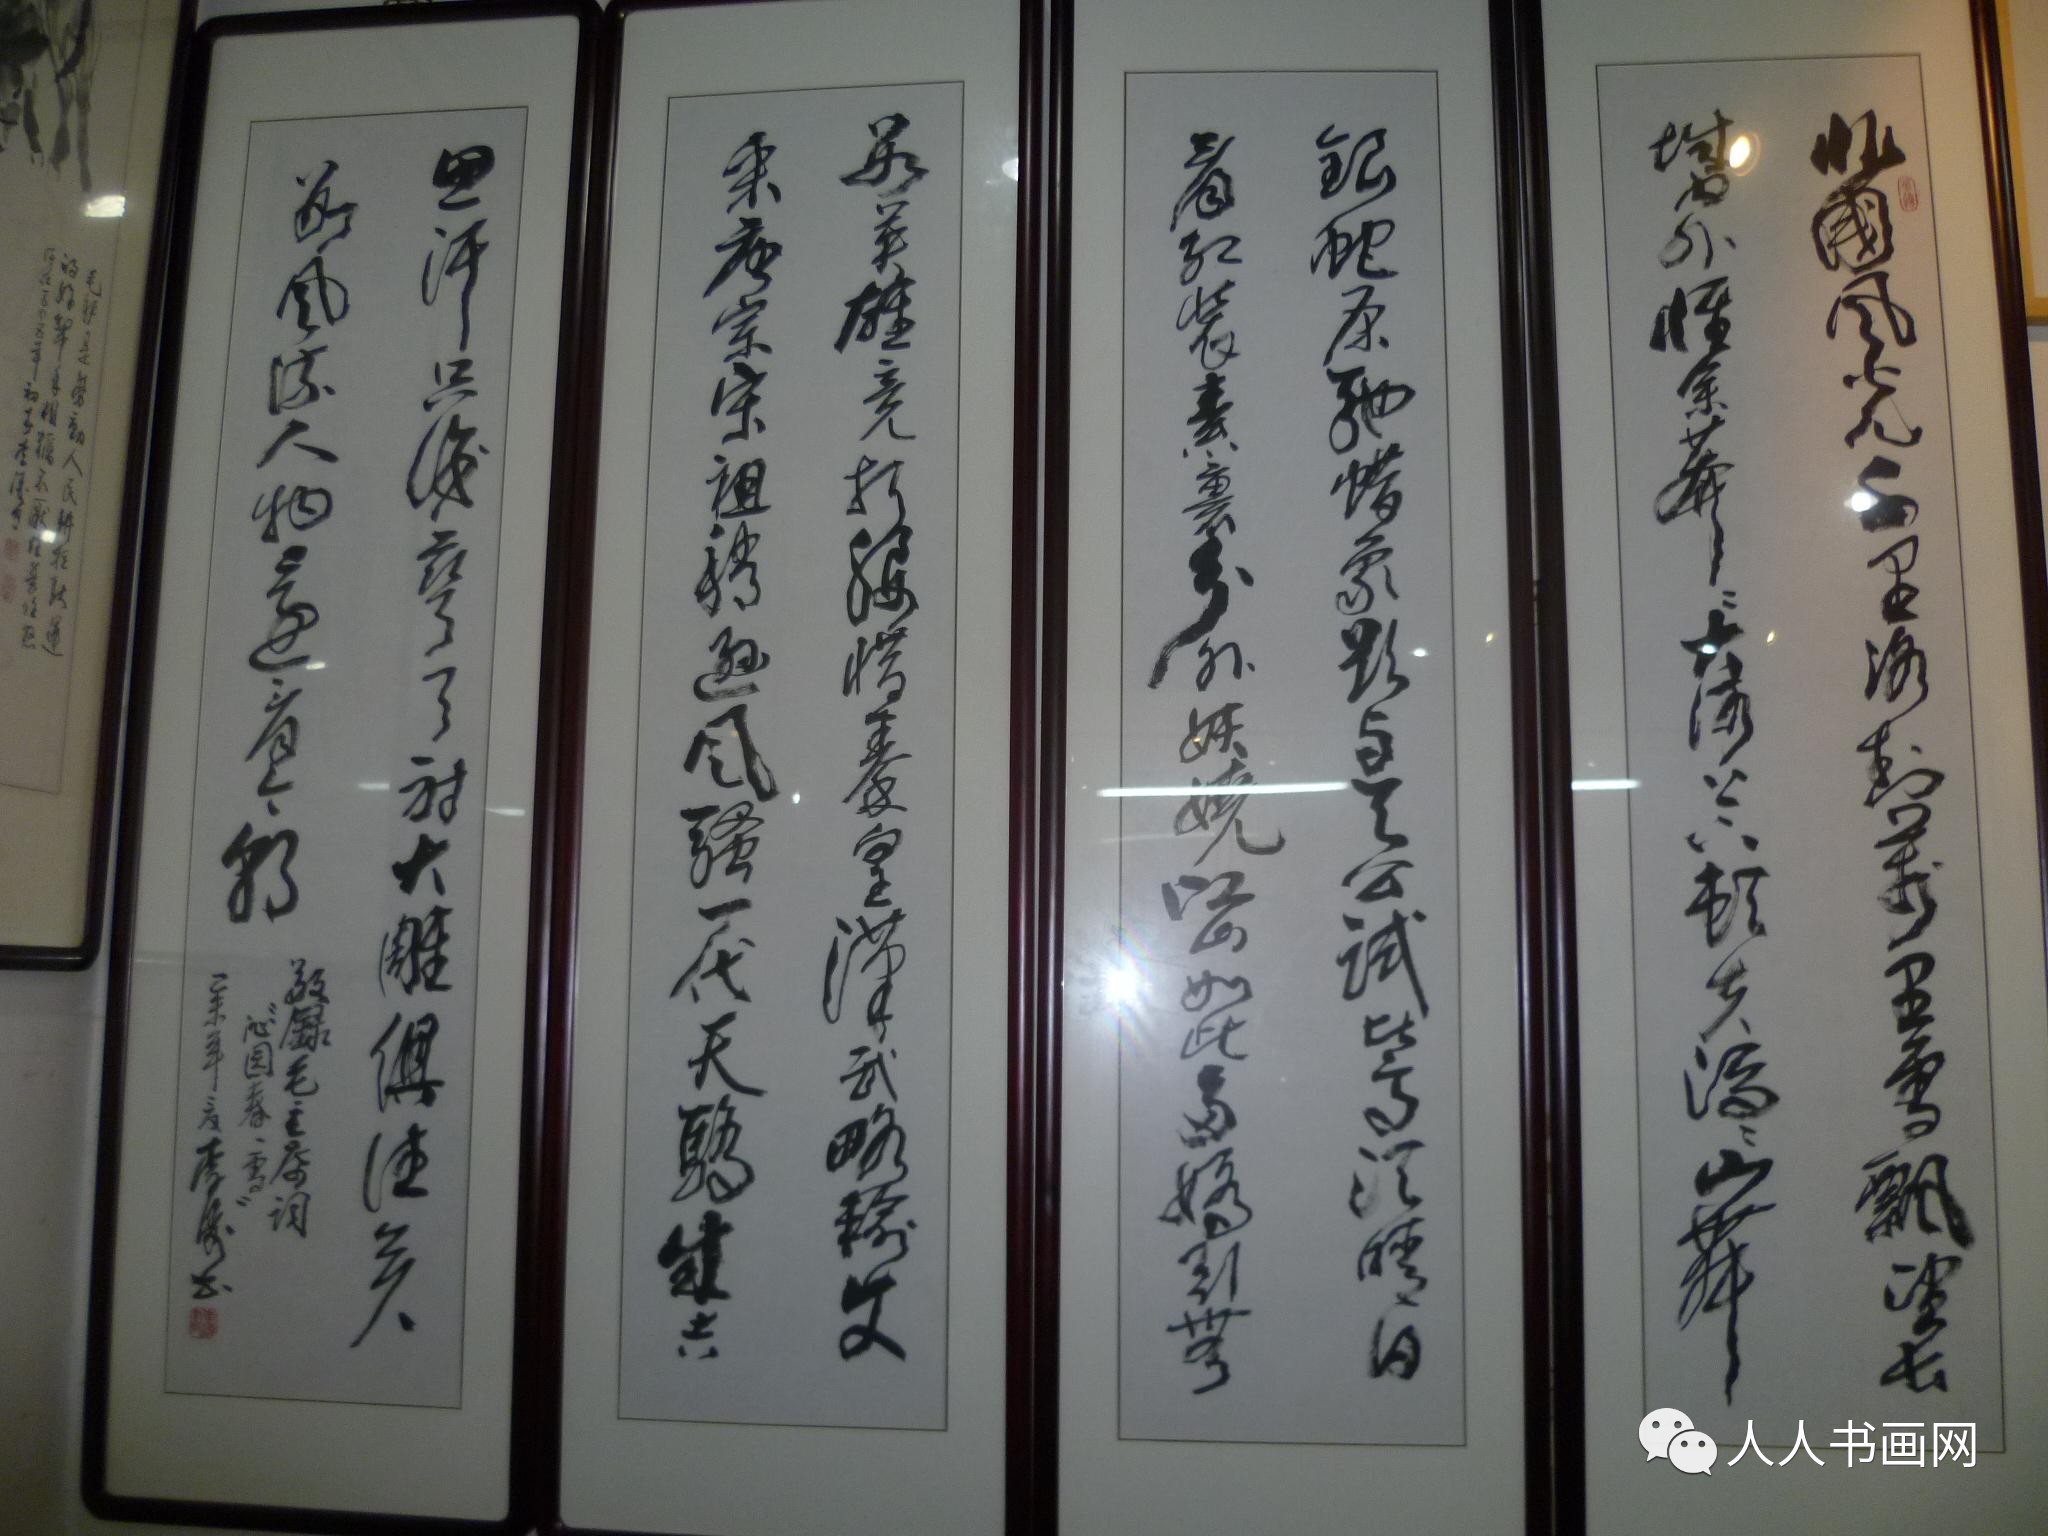 北國風光千里冰封萬里雪飄望长
城内外惟余莽莽大河上下頓失滔滔山舞
銀蛇原馳蜡象欲与天公試比高须晴日
看红装素裹分外妖娆江山如此多嬌引無
數英雄竞折腰惜秦皇漢武略輸文
采唐宗宋祖稍逊風騷一代天驕成吉
思汗只識弯弓射大雕俱往矣
數風流人物還看今朝
敬錄毛主席词
"沁园春·雪"
乙未年夏李书
人人书画网